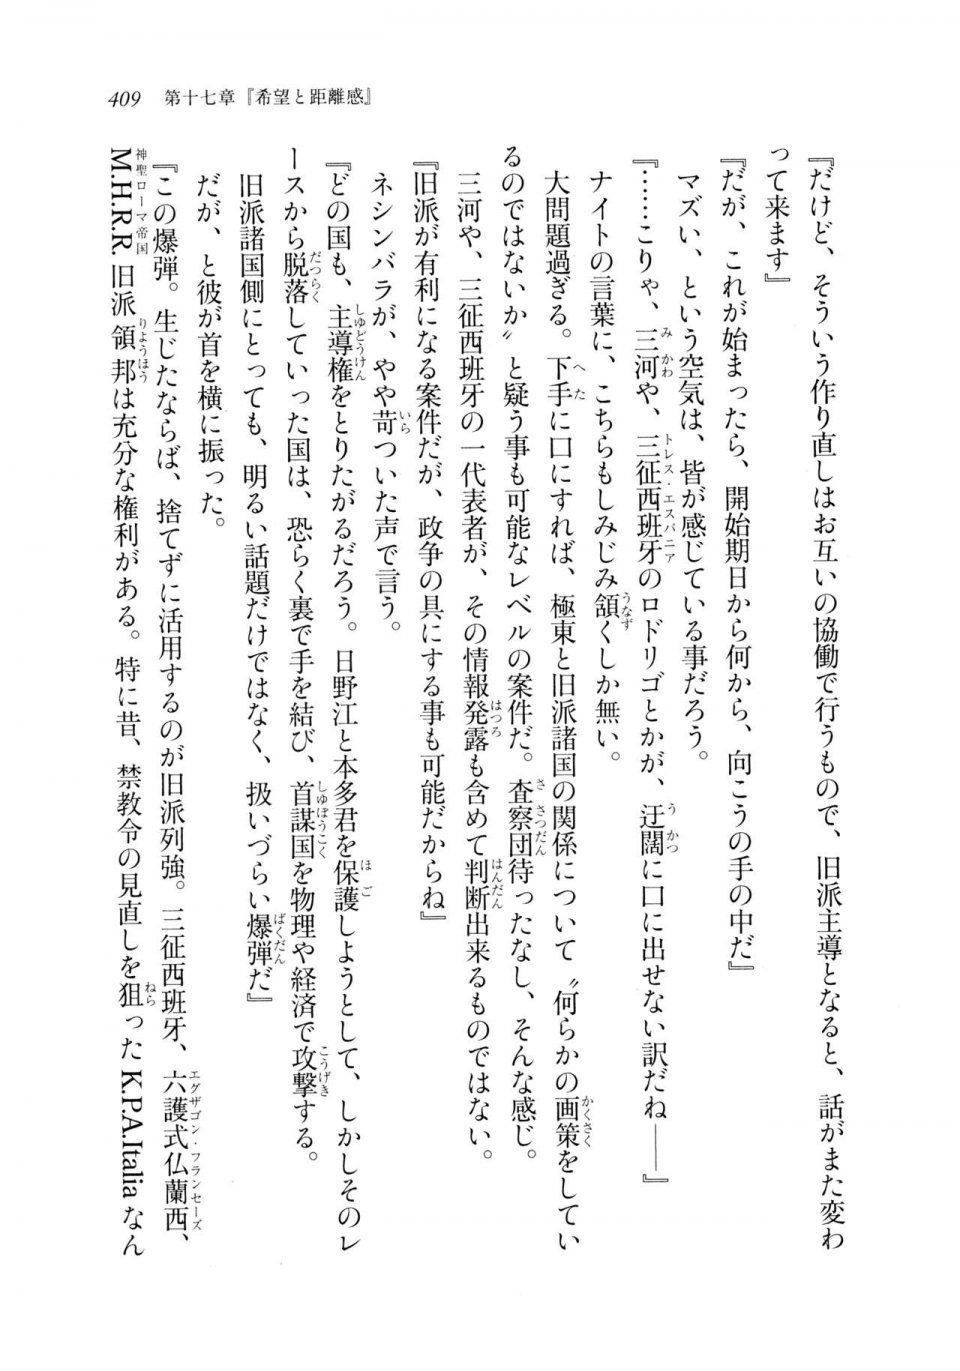 409　第十七章『希望と距離感』
『だけど、そういう作り直しはお互いの協働で行うもので、旧派主導となると、話がまた変わ
って来ます』
『だが、これが始まったら、開始期日から何から、向こうの手の中だ』
マズい、という空気は、皆が感じている事だろう。
『……こりゃ、三河や、三征西班牙のロドリゴとかが、迂闊に口に出せない訳だね——』
ナイトの言葉に、こちらもしみじみ頷くしか無い。
大問題過ぎる。下手に口にすれば、極東と旧派諸国の関係について〝何らかの画策をしてい
るのではないか〟と疑う事も可能なレベルの案件だ。査察団待ったなし、そんな感じ。
三河や、三征西班牙の一代表者が、その情報発露も含めて判断出来るものではない。
『旧派が有利になる案件だが、政争の具にする事も可能だからね』
ネシンバラが、やや苛ついた声で言う。
『どの国も、主導権をとりたがるだろう。日野江と本多君を保護しようとして、しかしそのレ
ースから脱落していった国は、恐らく裏で手を結び、首謀国を物理や経済で攻撃する。
旧派諸国側にとっても、明るい話題だけではなく、扱いづらい爆弾だ』
だが、と彼が首を横に振った。
『この爆弾。生じたならば、捨てずに活用するのが旧派列強。三征西班牙、六護式仏蘭西、
M.H.R.R.旧派領邦は充分な権利がある。特に昔、禁教令の見直しを狙ったK.P.A.Italiaなん